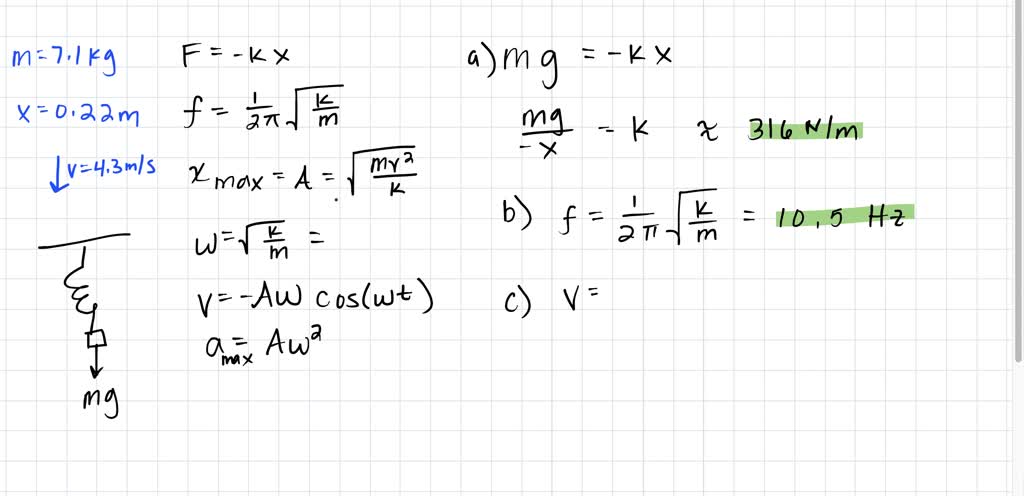 m = 7.1 kg
x = 0.22 m
↓ v = 4.3 m/s
mg
F = -k x
f = 1/2π √(k/m)
x max = A = √(mv²/k)
ω = √(k/m) =
v = -Aω cos(ωt)
a max = Aω²
a) mg = -k x
mg/-x = k ≈ 316 N/m
b) f = 1/2π √(k/m) = 10.5 Hz
c) v =